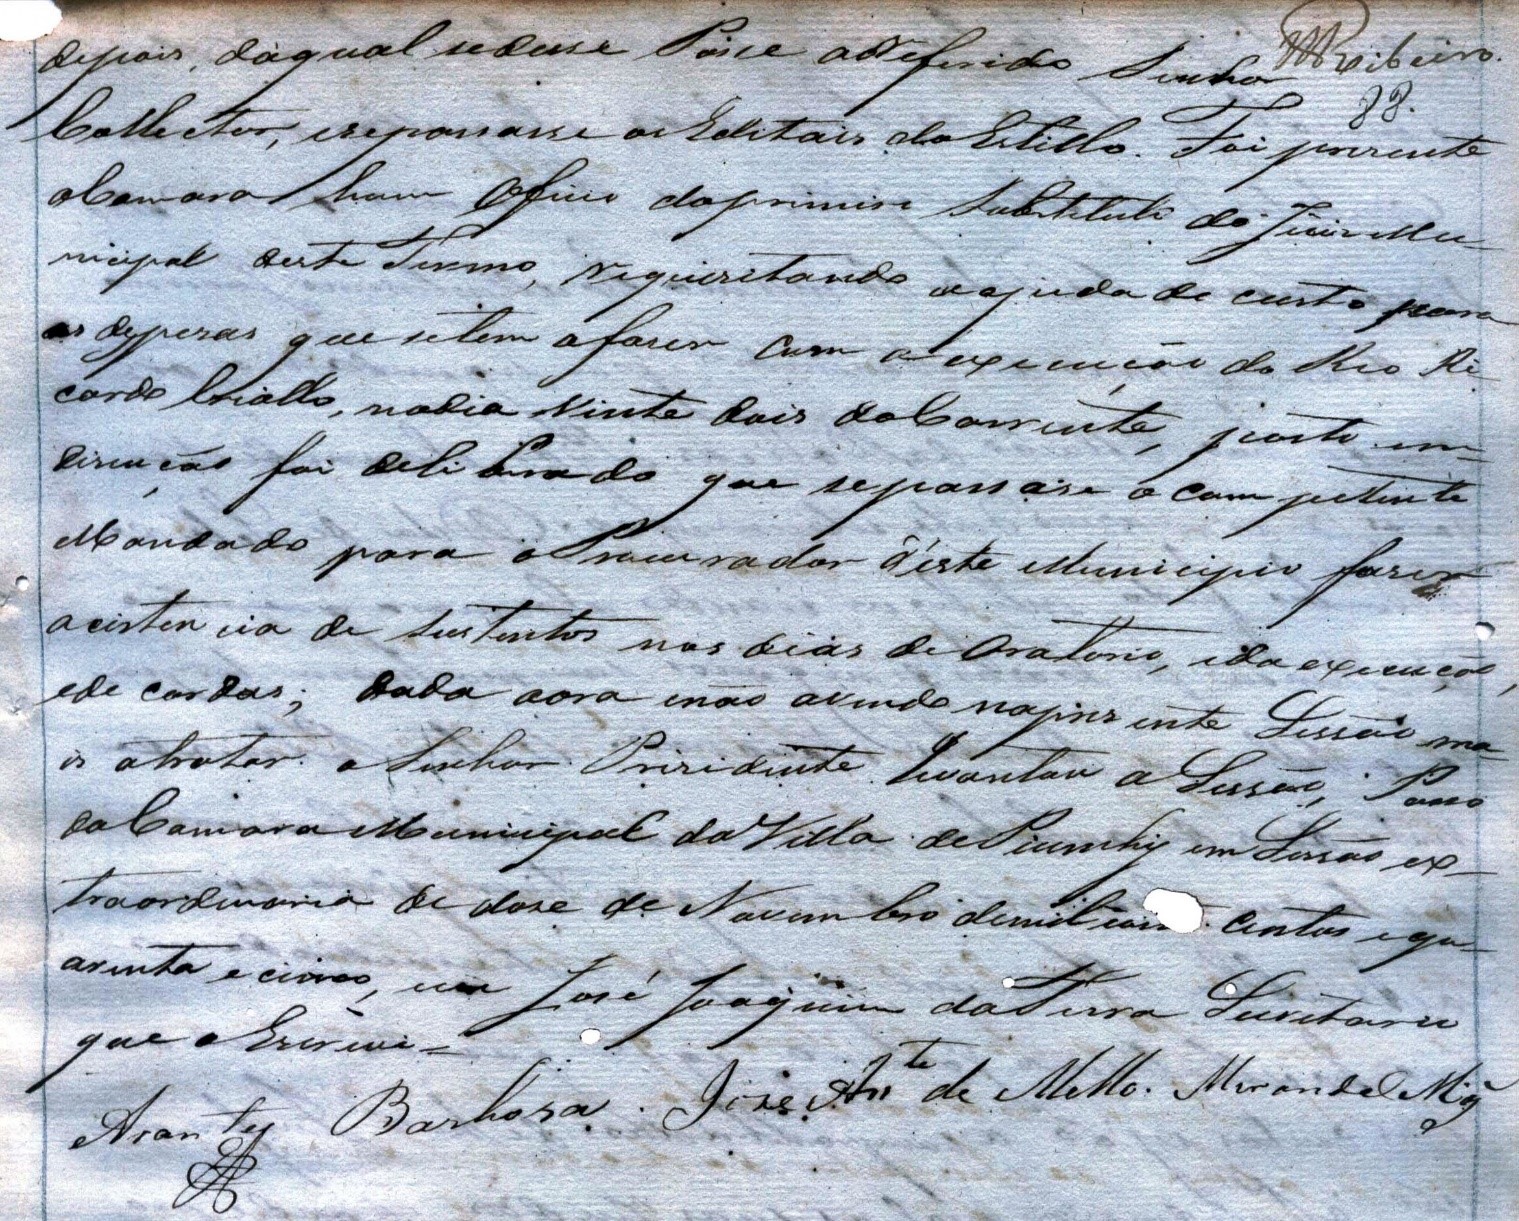 Ribeiro.
88.
depois, daqual sedesse Posse ao referido Senhor
Collector, esepassasse os Editais do Estillo. Foi prezente
a Camara hum Oficio do primeiro Substituto do Juis Mu-
nicipal deste Termo, requizitando a ajuda de custo para
as despezas que setem afaser com a execução do Reo Ri-
cardo Criollo, nodia Vinte dois do Corrente, posto em
discução foi deliberado que sepassase o competente
Mandado para o Procurador d'este Municipio faser
acistencia de sustentos nos dias de Oratorio, eda execução,
ede cordas; dada aora enão avendo naprezente Sessão ma-
is atratar o Senhor Prizidente levantou a Sessão, Paso
da Camara Municipal da Villa de Piumhy em Sessão ex-
traordinaria de dose de Novembro demil oito centos equ-
arenta e cinco, eu José Joaquim da Terra Secretario
que o Escrevi=
Arantes Barbosa. José Antte de Mello. Miranda Mig